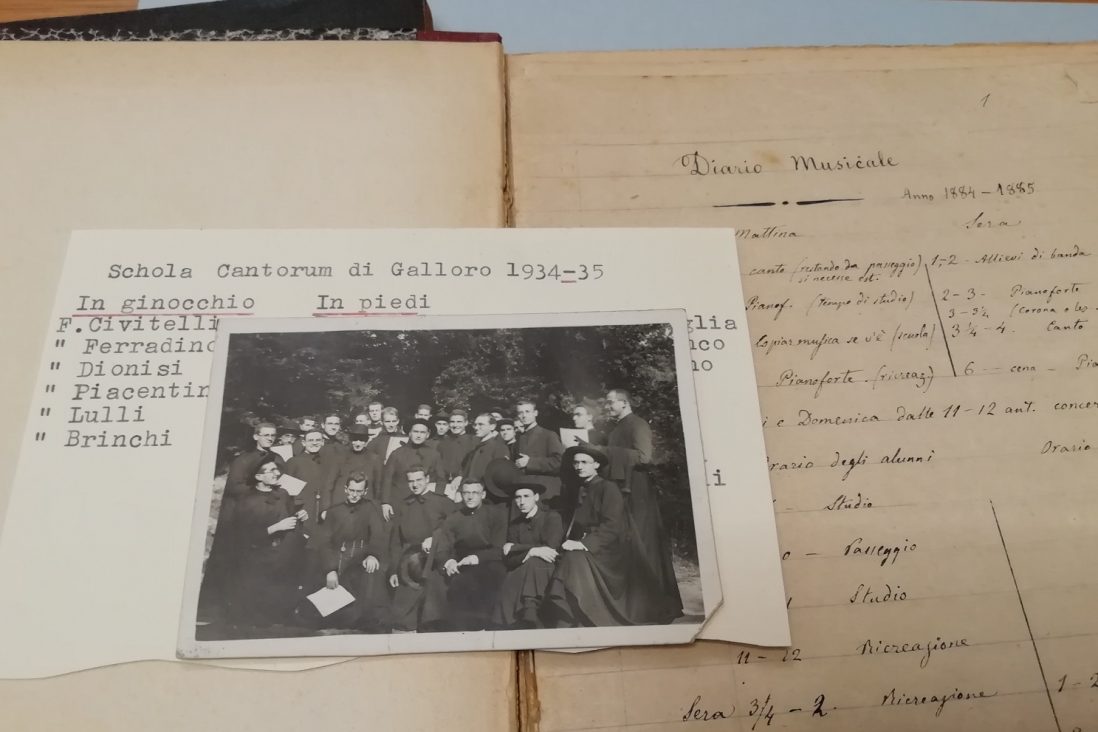 Schola Cantorum di Galloro 1934-35
In ginocchio In piedi
F.Civitelli glia
" Ferradino nco
" Dionisi no
" Piacentin
" Lulli
" Brinchi
li
1
Diario Musicale
Anno 1884-1885
Mattina Sera
canto (restando da passeggio) 1,-2 - Allievi di banda
si necesse est.
Pianof. (tempo di studio) 2-3- Pianoforte
3-3¼ (corona o
Copiar musica se v'è (scuola) 3¼-4. Canto
Pianoforte (ricreaz) 6 - cena -
i e Domenica dalle 11-12 ant. concer
Orario degli alunni Orario
- Studio
- Passeggio
Studio
11-12 Ricreazione
Sera ¾-2 Ricreazione 1-2